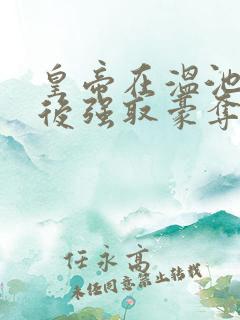 皇帝在温池
後强取豪奪
任永高
未经同意禁止转载